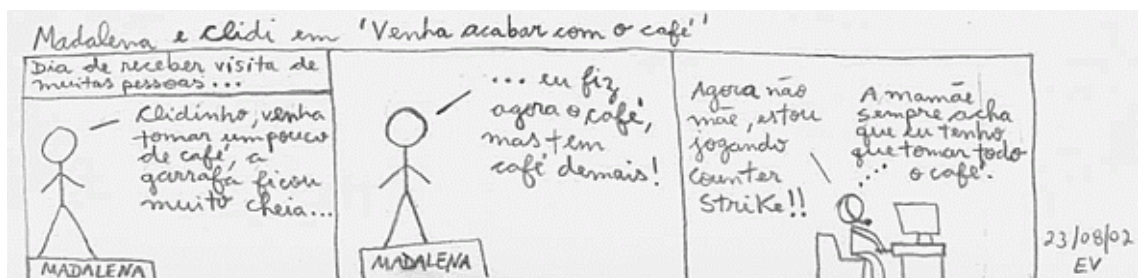 Madalena e Clidi em 'Venha acabar com o café'
Dia de receber visita de
muitas pessoas...
Clidinho, venha
tomar um pouco
de café, a
garrafa ficou
muito cheia...
MADALENA
... eu fiz
agora o café,
mas tem
café demais!
MADALENA
Agora não
mãe, estou
jogando
counter
Strike!!
A mamãe
sempre acha
que eu tenho
que tomar todo
o café.
23/08/02
EV